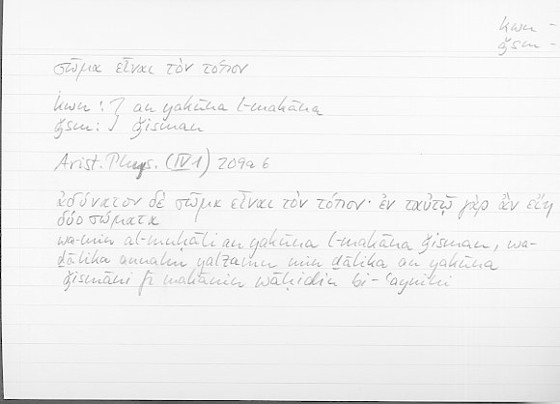 kwn -
ǧsm -
σῶμα εἶναι τὸν τόπον
kwn : } an yakūna l-makāna
ǧsm : } ǧisman
Arist. Phys. (IV 1) 209a6
ἀδύνατον δὲ σῶμα εἶναι τὸν τόπον· ἐν ταὐτῷ γὰρ ἂν εἴη
δύο σώματα
wa-min al-muḥāli an yakūna l-makāna ǧisman, wa-
ḏālika annahu yalzamu min ḏālika an yakūna
ǧismāni fī makānin wāḥidin bi-ʿaynihi